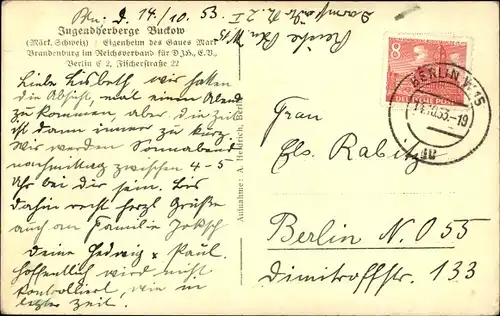 Bln. d. 14/10.53.
Jugendherberge Buckow
(Märk. Schweiz) / Eigenheim des Gaues Mark
Brandenburg im Reichsverband für DJH., E.V.,
Berlin C 2, Fischerstraße 22
Liebe Lisbeth wir hatten
die Absicht, mal einen Abend
zu kommen, aber die Zeit
ist dann immer zu kurz.
Wir werden Sonnabend
nachmittag zwischen 4-5
Uhr bei dir sein. Bis
dahin recht herzl Grüße
auch an Familie
deine Hedwig & Paul.
hoffentlich wird nicht
kontrolliert, wie in
letzter Zeit.
Aufnahme: A. Heidrich, Berlin
8
DEUTSCHE POST
BERLIN W 15
14.10.53.-19
Frau
Els. Rabitz
Berlin N.O 55
Dimitroffstr. 133